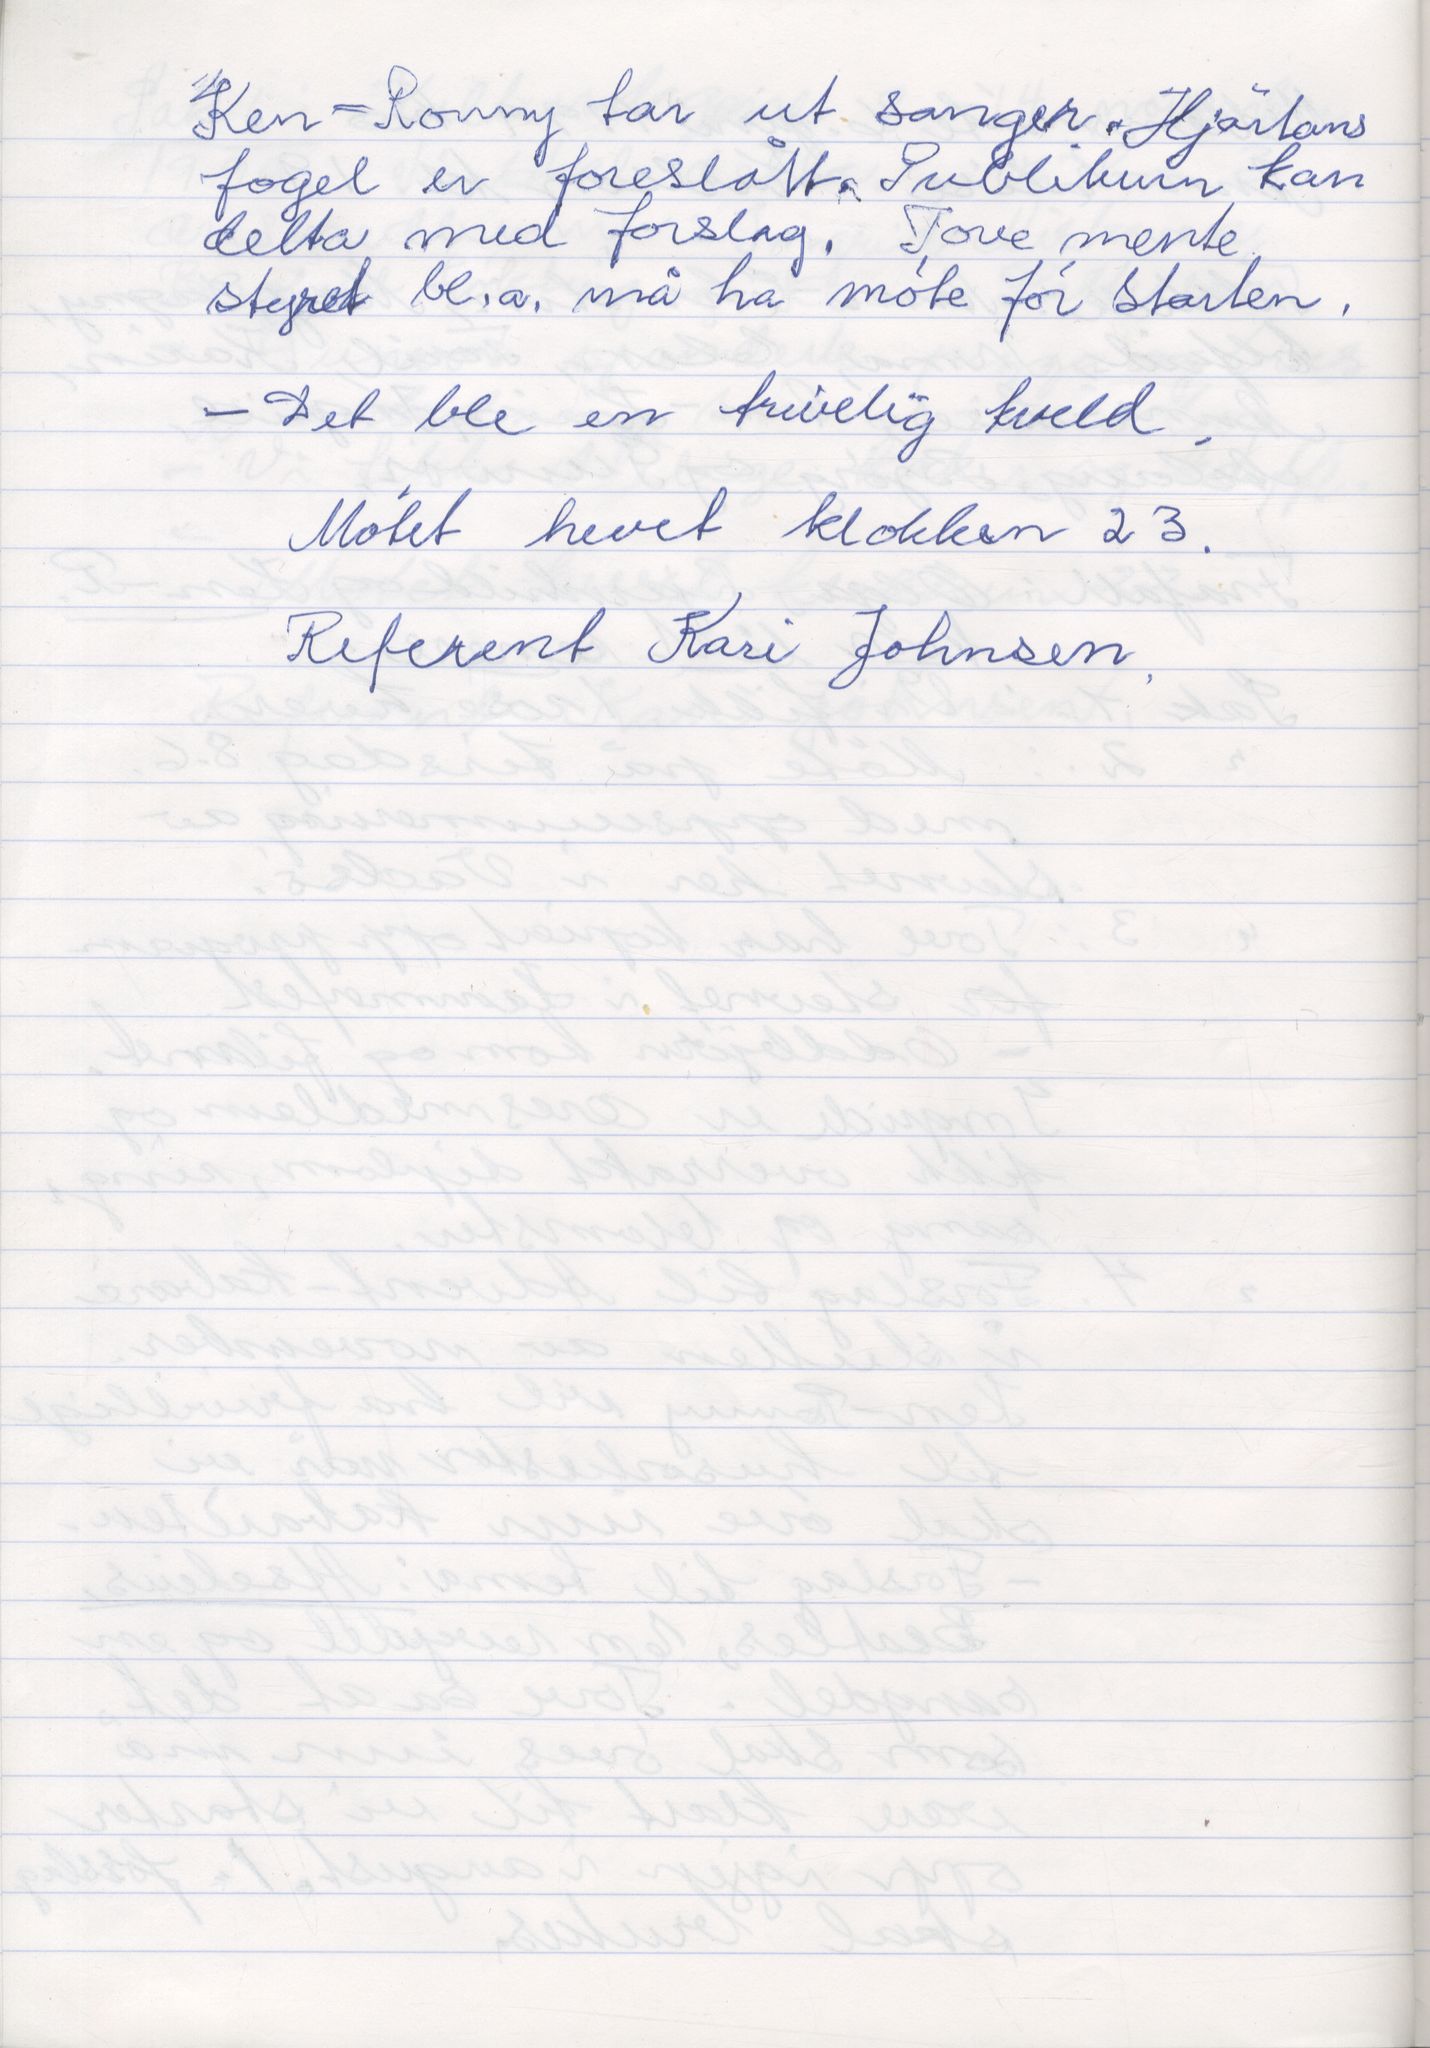 Ken-Ronny tar ut sanger. Hjärtans
fogel er foreslått. Publikum kan
delta med forslag. Tove mente
styret bl.a. må ha móte fór starten.
- Det ble en trivelig kveld.
Mótet hevet klokken 23.
Referent Kari Johnsen.